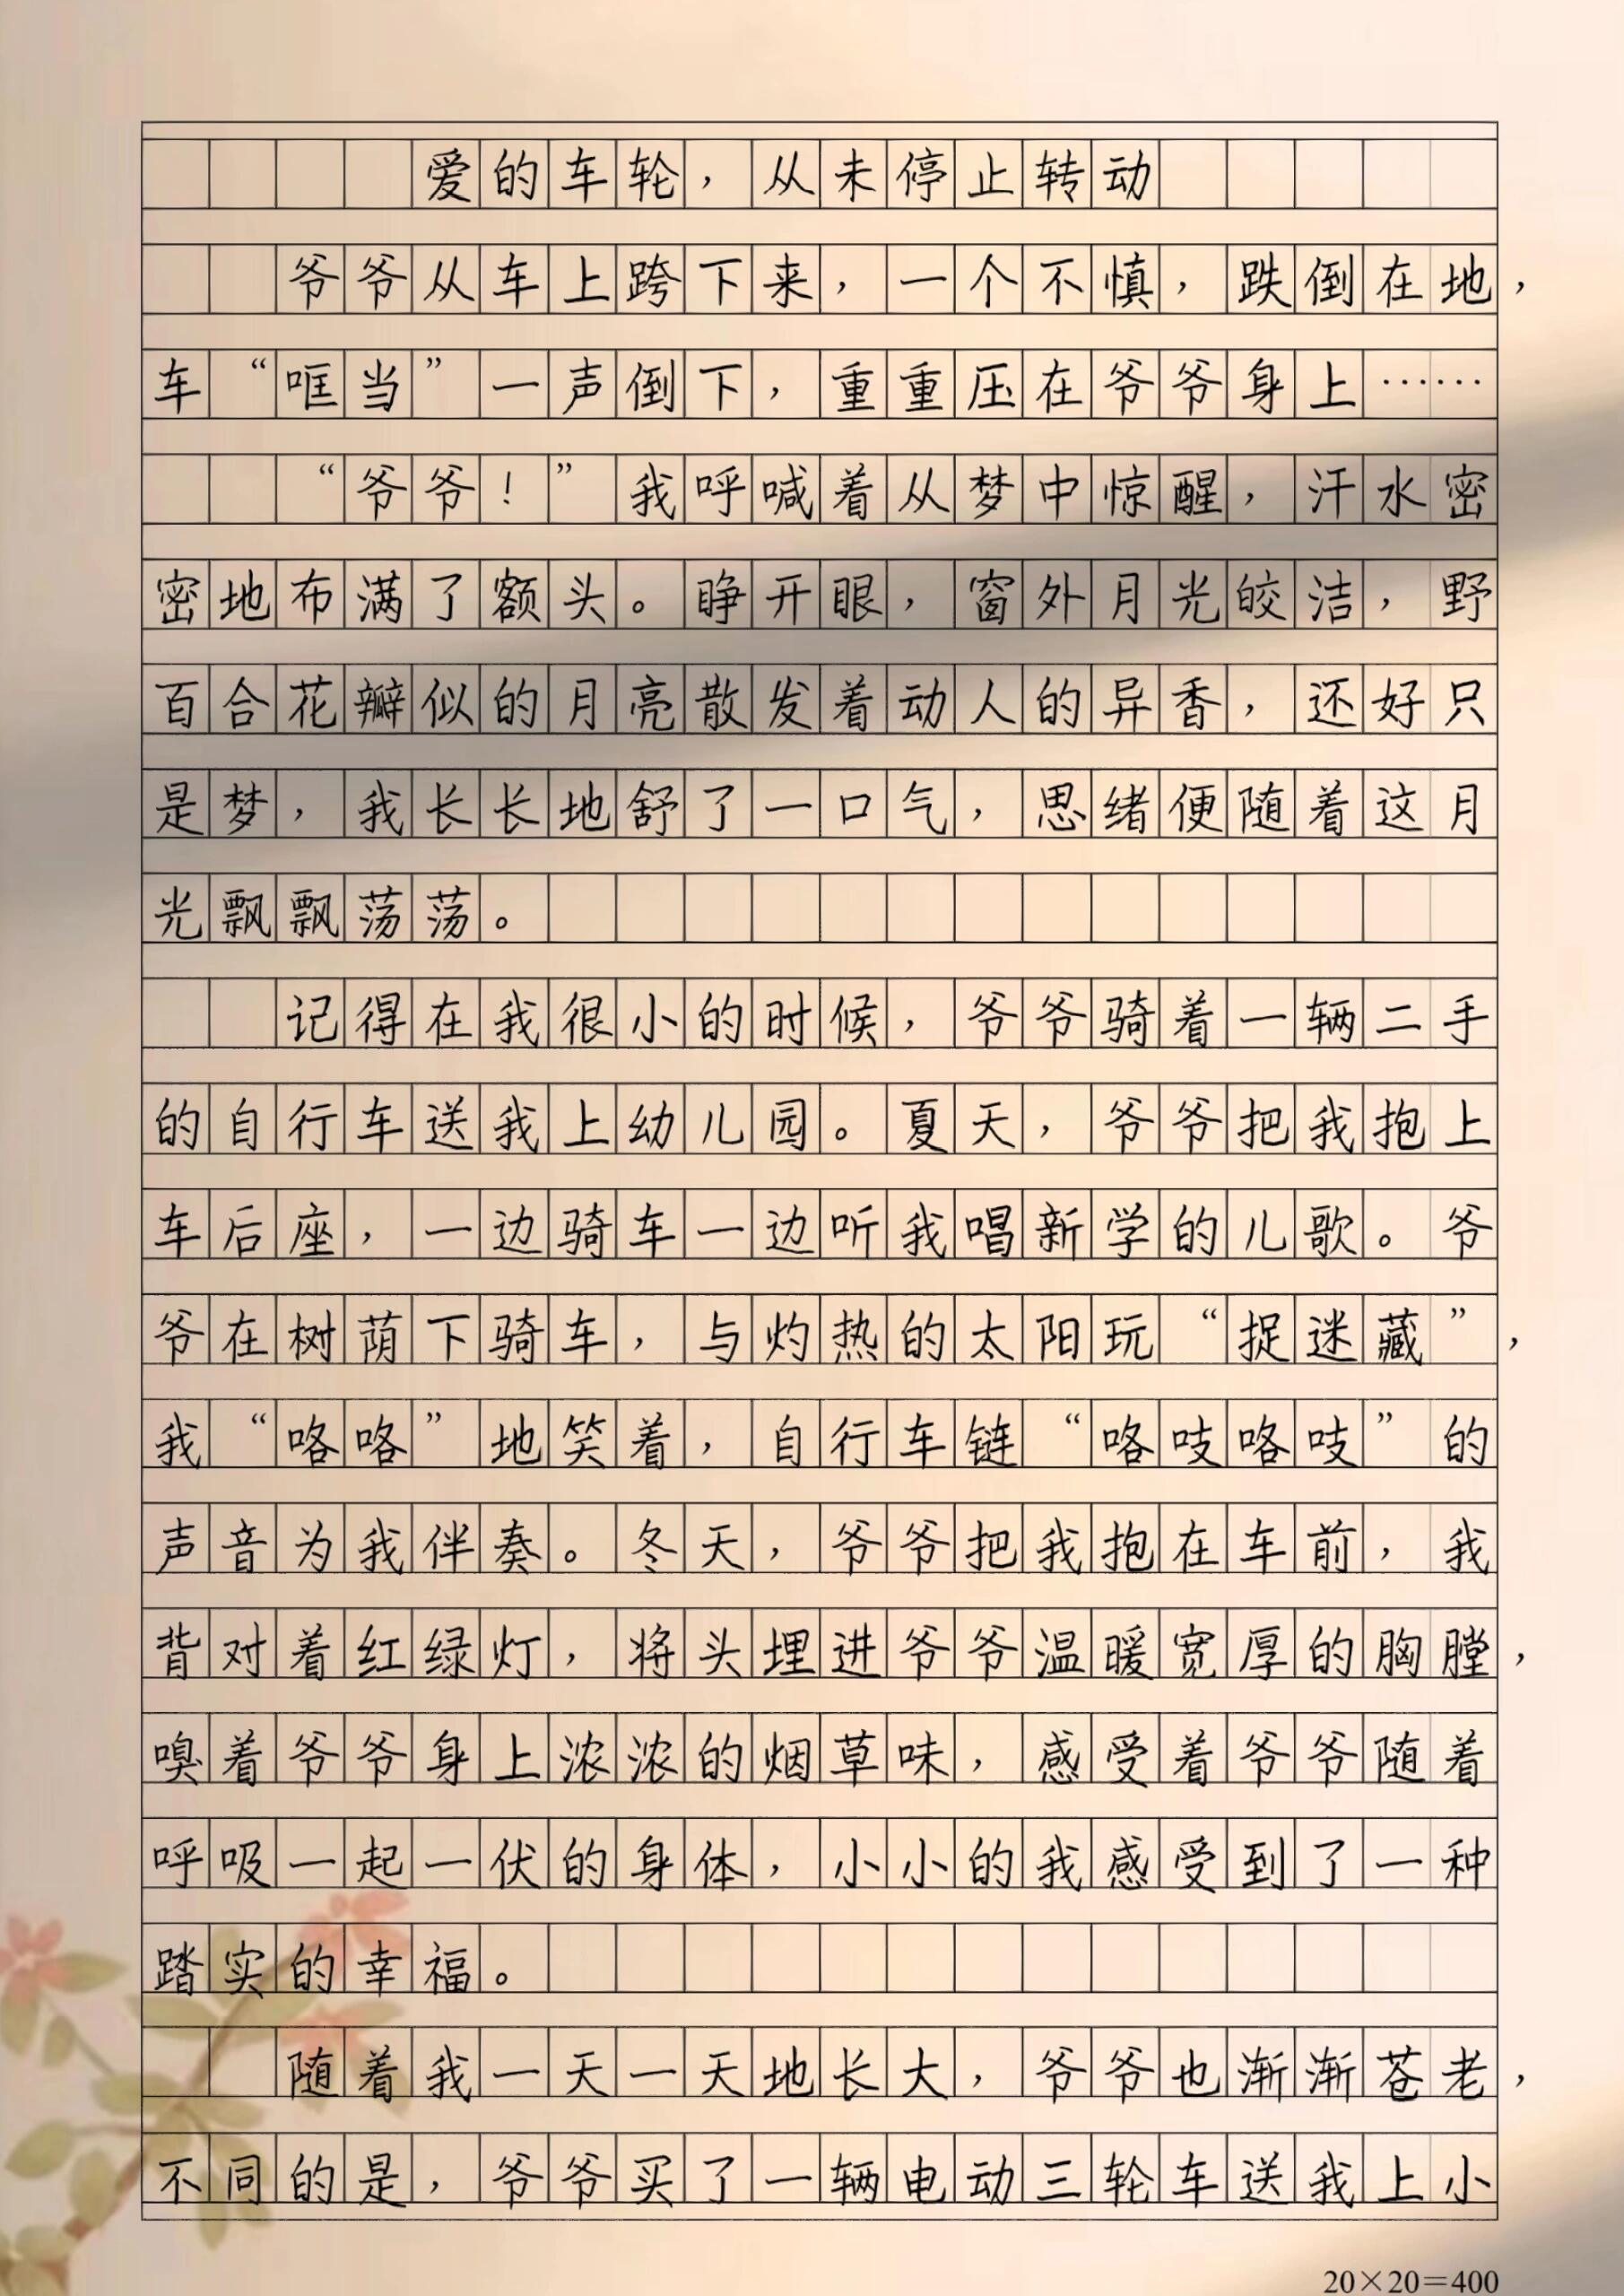 爱的车轮，从未停止转动
爷爷从车上跨下来，一个不慎，跌倒在地，
车“哐当”一声倒下，重重压在爷爷身上……
“爷爷！”我呼喊着从梦中惊醒，汗水密
密地布满了额头。睁开眼，窗外月光皎洁，野
百合花瓣似的月亮散发着动人的异香，还好只
是梦，我长长地舒了一口气，思绪便随着这月
光飘飘荡荡。
记得在我很小的时候，爷爷骑着一辆二手
的自行车送我上幼儿园。夏天，爷爷把我抱上
车后座，一边骑车一边听我唱新学的儿歌。爷
爷在树荫下骑车，与灼热的太阳玩“捉迷藏”，
我“咯咯”地笑着，自行车链“咯吱咯吱”的
声音为我伴奏。冬天，爷爷把我抱在车前，我
背对着红绿灯，将头埋进爷爷温暖宽厚的胸膛，
嗅着爷爷身上浓浓的烟草味，感受着爷爷随着
呼吸一起一伏的身体，小小的我感受到了一种
踏实的幸福。
随着我一天一天地长大，爷爷也渐渐苍老，
不同的是，爷爷买了一辆电动三轮车送我上小
20×20=400